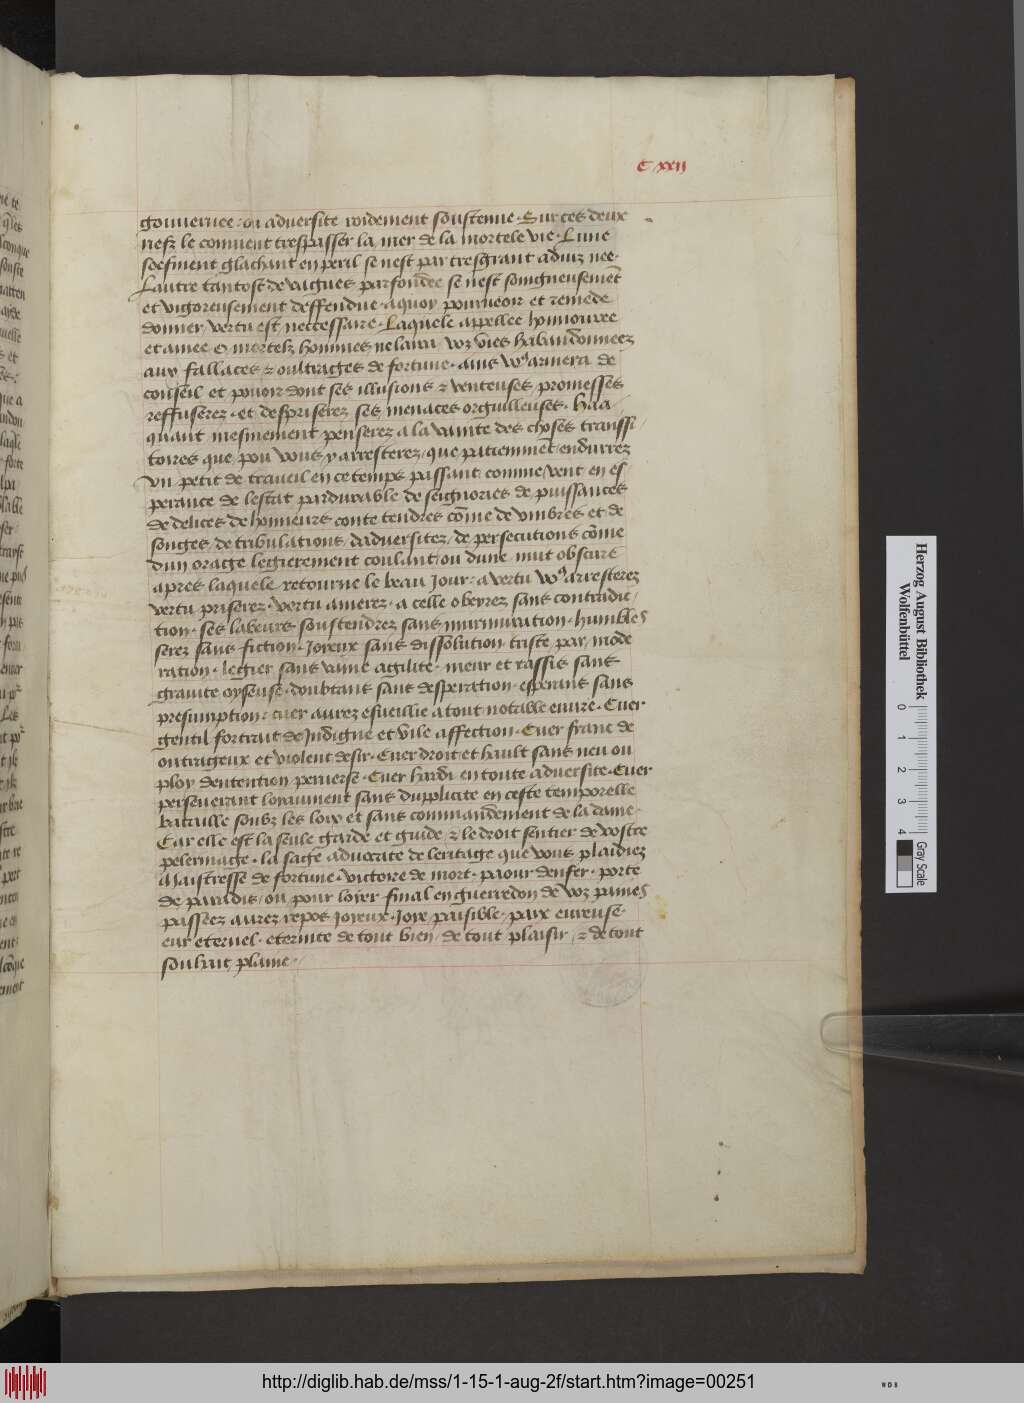 C xxij
gouvernee · ou adversite roidement soustenue · Sur ces deux
nefz le convient trespasser la mer de la mortele vie · Lune
soefment glachant en peril se nest par tresgrant adviz nee ·
Lautre tantost de vagues parfondee se nest songneusemēt
et vigoreusement deffendue · aquoy pourveoir et remede
donner vertu est neccessaire · Laquele appellee honnouree
et amee o mortelz hommes ne laira voz vies habandonneez
aux fallaces ⁊ oultrages de fortune · ains vo⁹ armera de
conseil et povoir dont ses illusions ⁊ venteuses promesses
reffuserez · et despriserez ses menaces orguilleuses · haa
quant mesmement penserez a la vanite des choses transsi/
toires que pou vous y arresterez, que patiemmēt endurrez
un petit de traveil en ce temps passant comme vent en es
perance de lestat pardurable de seignories de puissances
de delices de honneurs conte tendres cōme de umbres et de
songes / de tribulations / dadversitez / de persecutions cōme
dun orage legierement coulant / ou dune nuit obscure
apres laquele retourne le beau jour · a vertu vo⁹ arresterez
vertu priserez · vertu amerez · a celle obeyrez sans contradic/
tion · ses labeurs soustendrez sans murmuration · humbles
serez sans fiction · joyeux sans dissolution triste par mode
ration · legier sans vaine agilite · meur et rassis sans
gravite oyseuse · doubtans sans desperation · esperans sans
presumption · cuer aurez esveillie a tout notable euvre · Cuer
gentil fortrait de indigne et vile affection · Cuer franc de
oultrageux et violent desir · Cuer droit et hault sans neu ou
ploy dentention perverse · Cuer hardi en toute adversite · Cuer
perseverant loyaument sans dupplicite en ceste temporelle
bataille soubz les loix et sans commandement de la dame ·
Car elle est la seule garde et guide ⁊ le droit sentier de vostre
pelerinage · la sage advocate de leritage que vous plaidiez
Maistresse de fortune · victoire de mort · paour denfer · porte
de paradis / ou pour loyer final en guerredon de voz paines
passeez aurez repos joyeux · joye paisible · paix eureuse ·
eur eternel · eternite de tout bien / de tout plaisir / ⁊ de tout
souhait plaine ·
Herzog August Bibliothek
Wolfenbüttel
0 1 2 3 4
Gray Scale
http://diglib.hab.de/mss/1-15-1-aug-2f/start.htm?image=00251